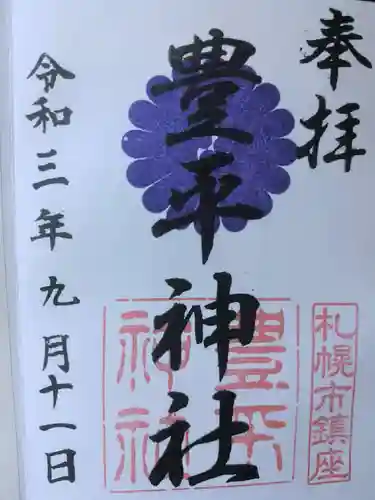 奉拝
札幌市鎮座
豊平神社
豊平
神社
令和三年九月十一日